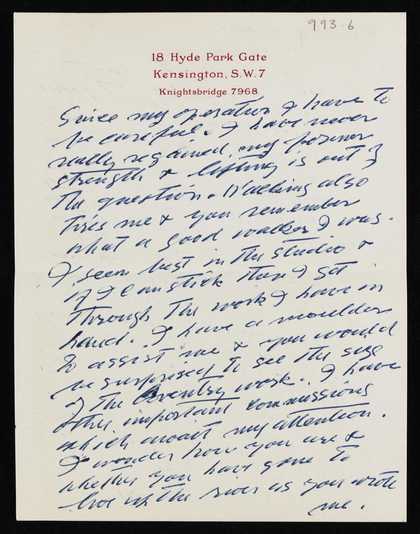 993.6
18 Hyde Park Gate
Kensington, S.W.7
Knightsbridge 7968
Since my operation I have to
be careful. I have never
really regained my former
strength & lifting is out of
the question. Walking also
tires me & you remember
what a good walker I was.
I seem best in the studio &
if I can stick there I get
through the work I have in
hand. I have a moulder
to assist me & you would
be surprised to see the size
of the Coventry work. I have
other important commissions
which await my attention.
I wonder how you are &
whether you have gone to
live up the river as you wrote
me.